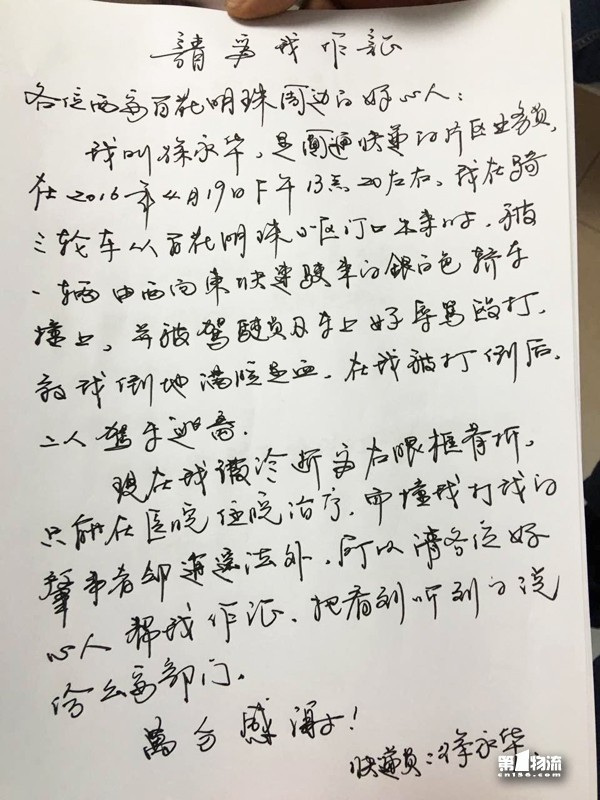 請為我作証
各位西安百花明珠周边的好心人:
我叫徐永华,是圆通快递的片区业务员,
在2016年4月19日下午13点20左右,我在骑
三轮车从百花明珠小区门口出来时,被
一辆由西向東快速駛来的銀白色轿车
撞上,并被驾駛员及车上好辱骂殴打,
致我倒地满脸是血,在我被打倒后,
二人驾车逃离.
现在我被诊断为右眼框骨折,
只能在医院住院治疗,而撞我打我的
肇事者却逍遥法外,所以请各位好
心人帮我作证,把看到听到的说
给公安部门。
萬分感谢!
快递员:徐永华
第1物流
cn156.com